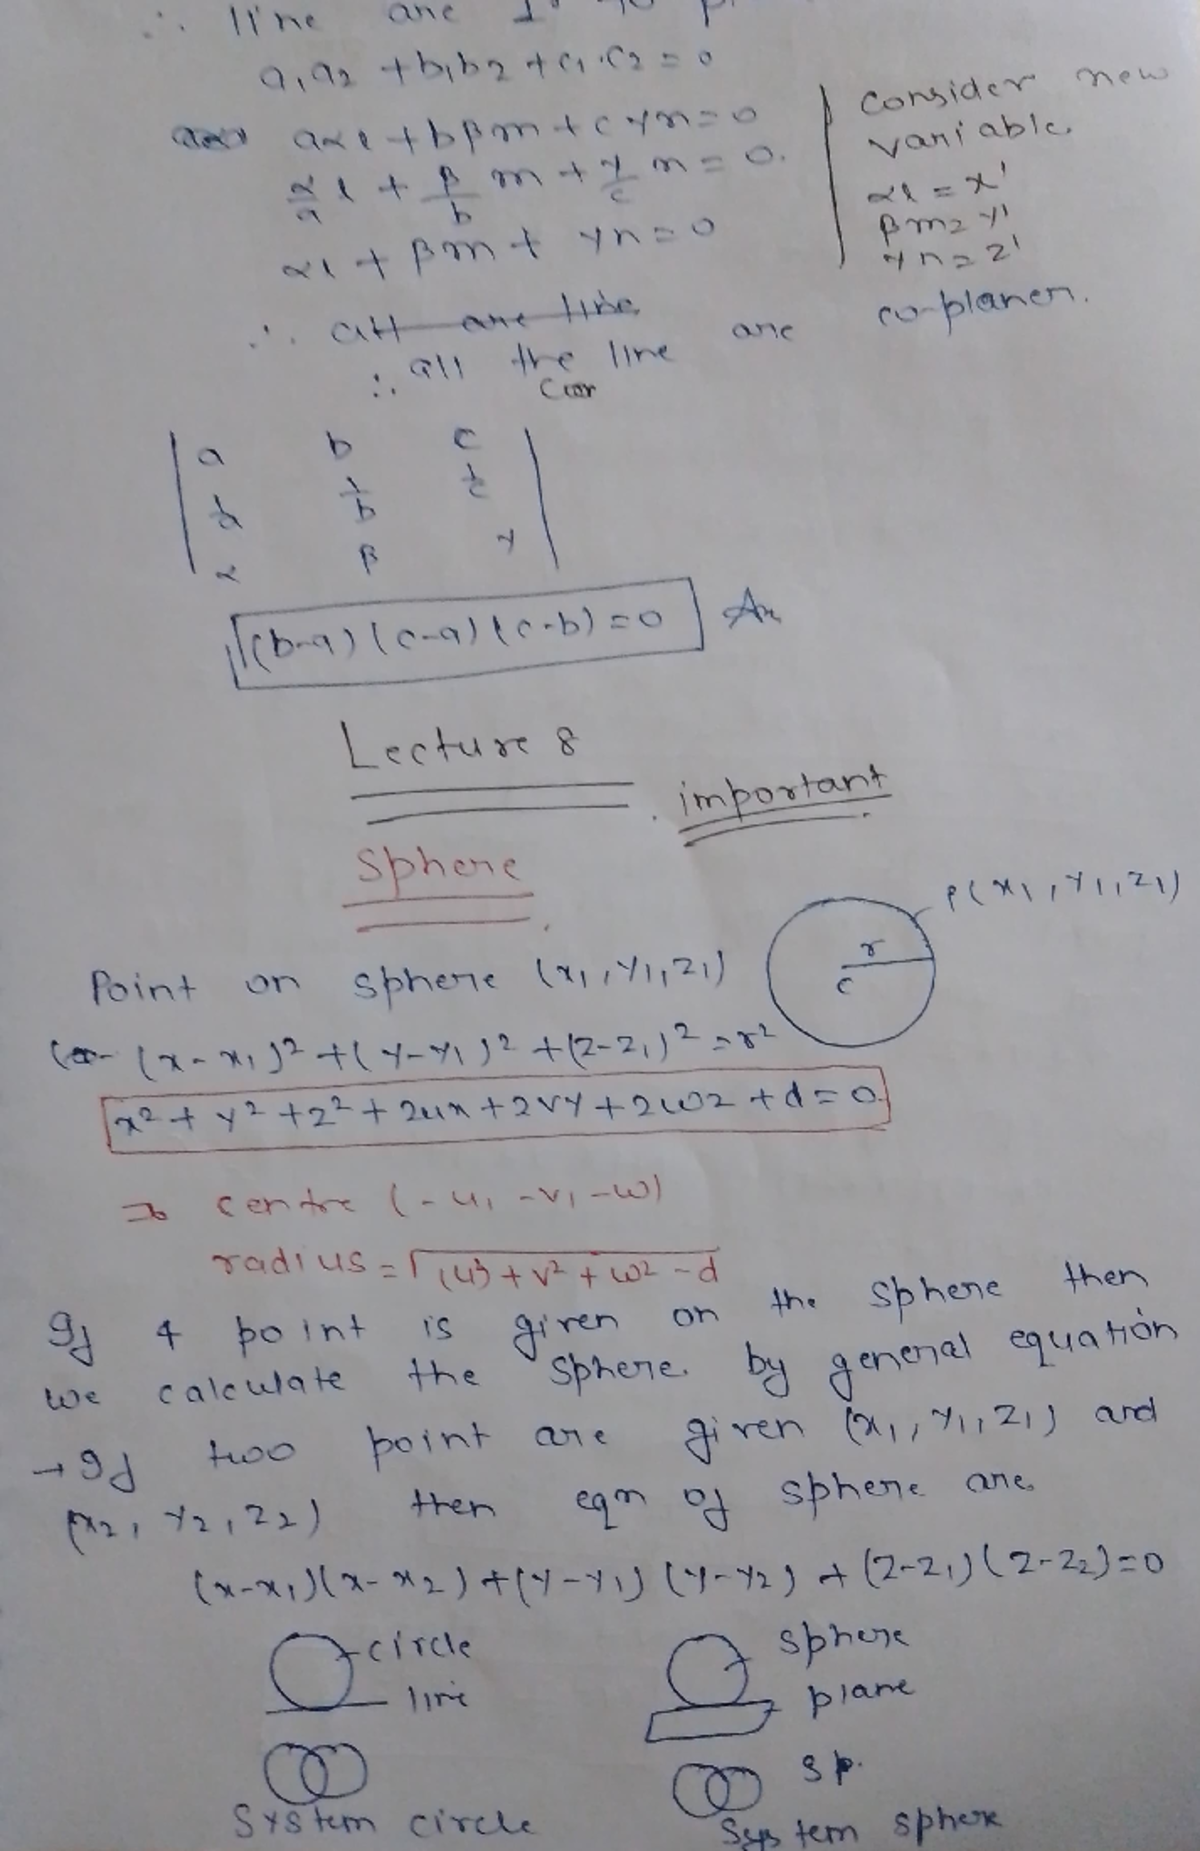 ∴ line are
a₁a₂ + b₁b₂ + c₁.c₂ = 0
aαl + bβm + cγn = 0
α/a l + β/b m + γ/c n = 0.
αl + βm + γn = 0
consider new
variable.
αl = x'
βm = y'
γn = z'
∴ all are line
∴ all the line are co-planer.
| a b c |
| 1/a 1/b 1/c |
| α β γ |
(b-a) (c-a) (c-b) = 0 An
Lecture 8
important
Sphere
P(x₁, y₁, z₁)
r
c
Point on sphere (x₁, y₁, z₁)
(x-x₁)² + (y-y₁)² + (z-z₁)² = r²
x² + y² + z² + 2ux + 2vy + 2wz + d = 0
⇒ centre (-u, -v, -w)
radius = √(u)² + v² + w² - d
If 4 point is given on the sphere then
we calculate the sphere. by general equation
→ If two point are given (x₁, y₁, z₁) and
(x₂, y₂, z₂) then eqn of sphere are
(x-x₁)(x-x₂) + (y-y₁) (y-y₂) + (z-z₁)(z-z₂) = 0
circle
line
sphere
plane
sp.
System circle
System sphere